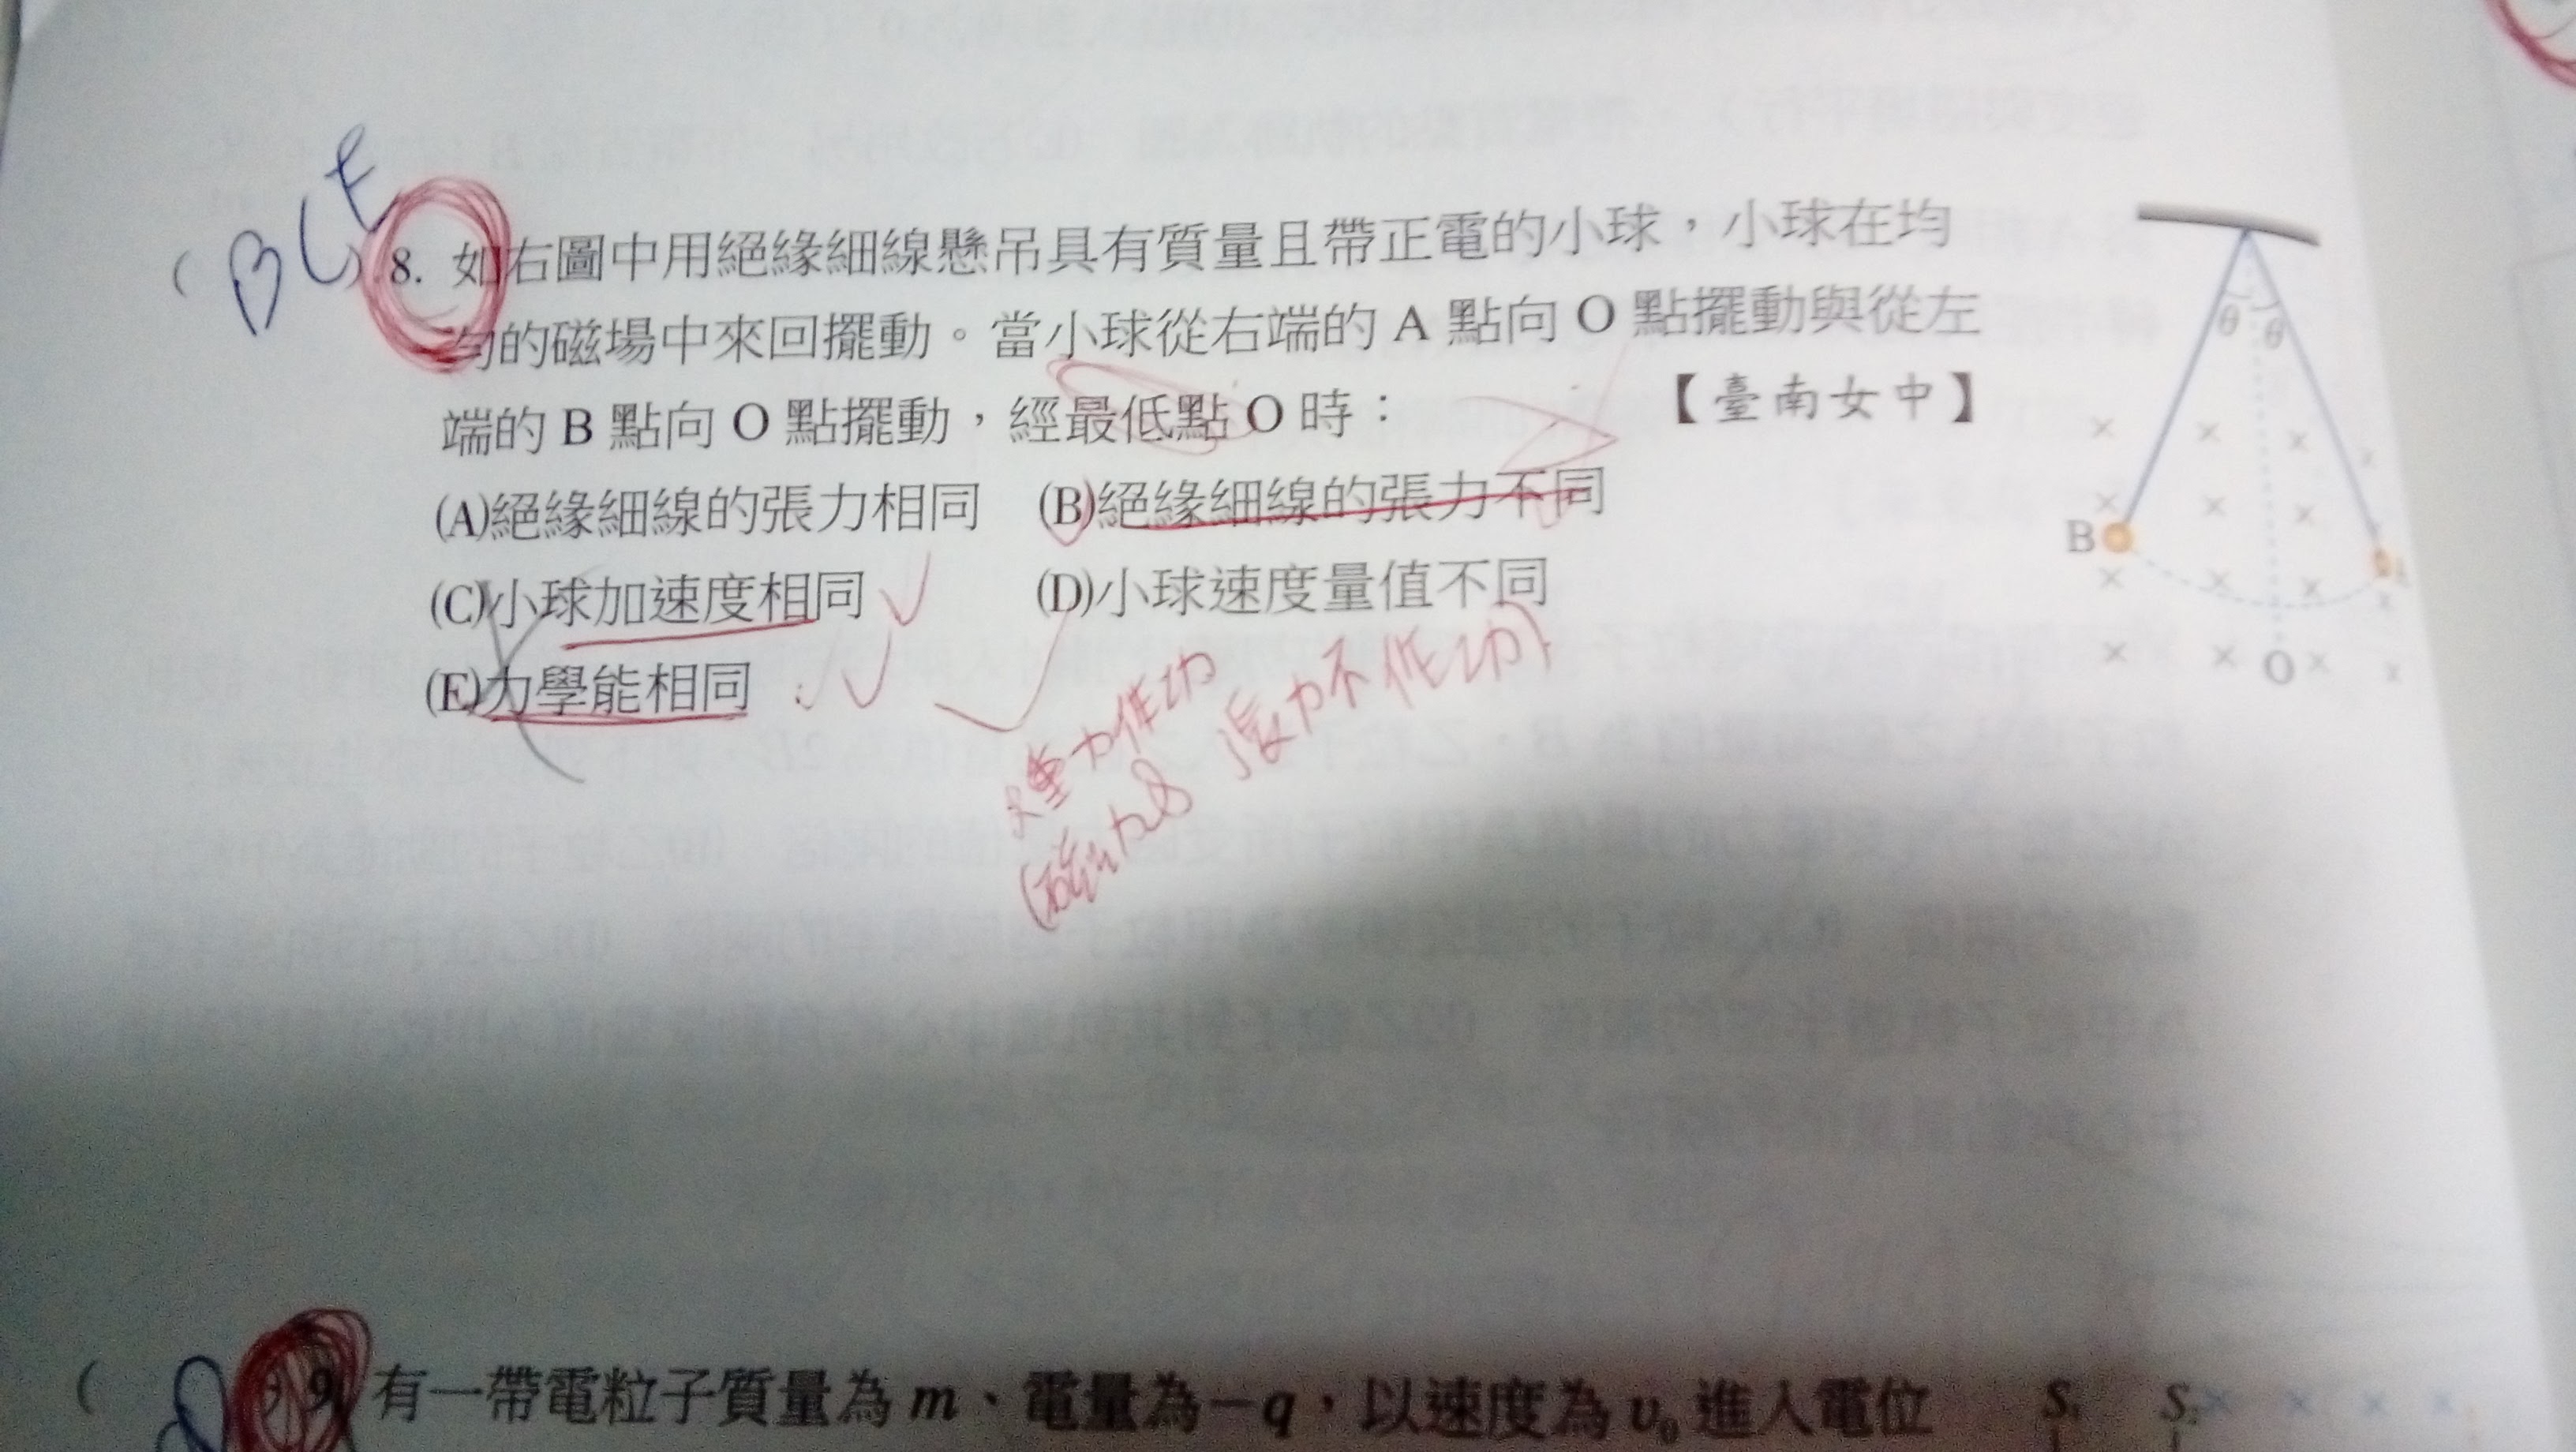 BCE
( ) 8. 如右圖中用絕緣細線懸吊具有質量且帶正電的小球，小球在均
勻的磁場中來回擺動。當小球從右端的 A 點向 O 點擺動與從左
端的 B 點向 O 點擺動，經最低點 O 時： 【臺南女中】
(A)絕緣細線的張力相同 (B)絕緣細線的張力不同
(C)小球加速度相同 (D)小球速度量值不同
(E)力學能相同
θ θ
B
O
重力作功
(磁力& 張力不作功)
( ) 9. 有一帶電粒子質量為 m、電量為−q，以速度為 v₀ 進入電位
S₁ S₂